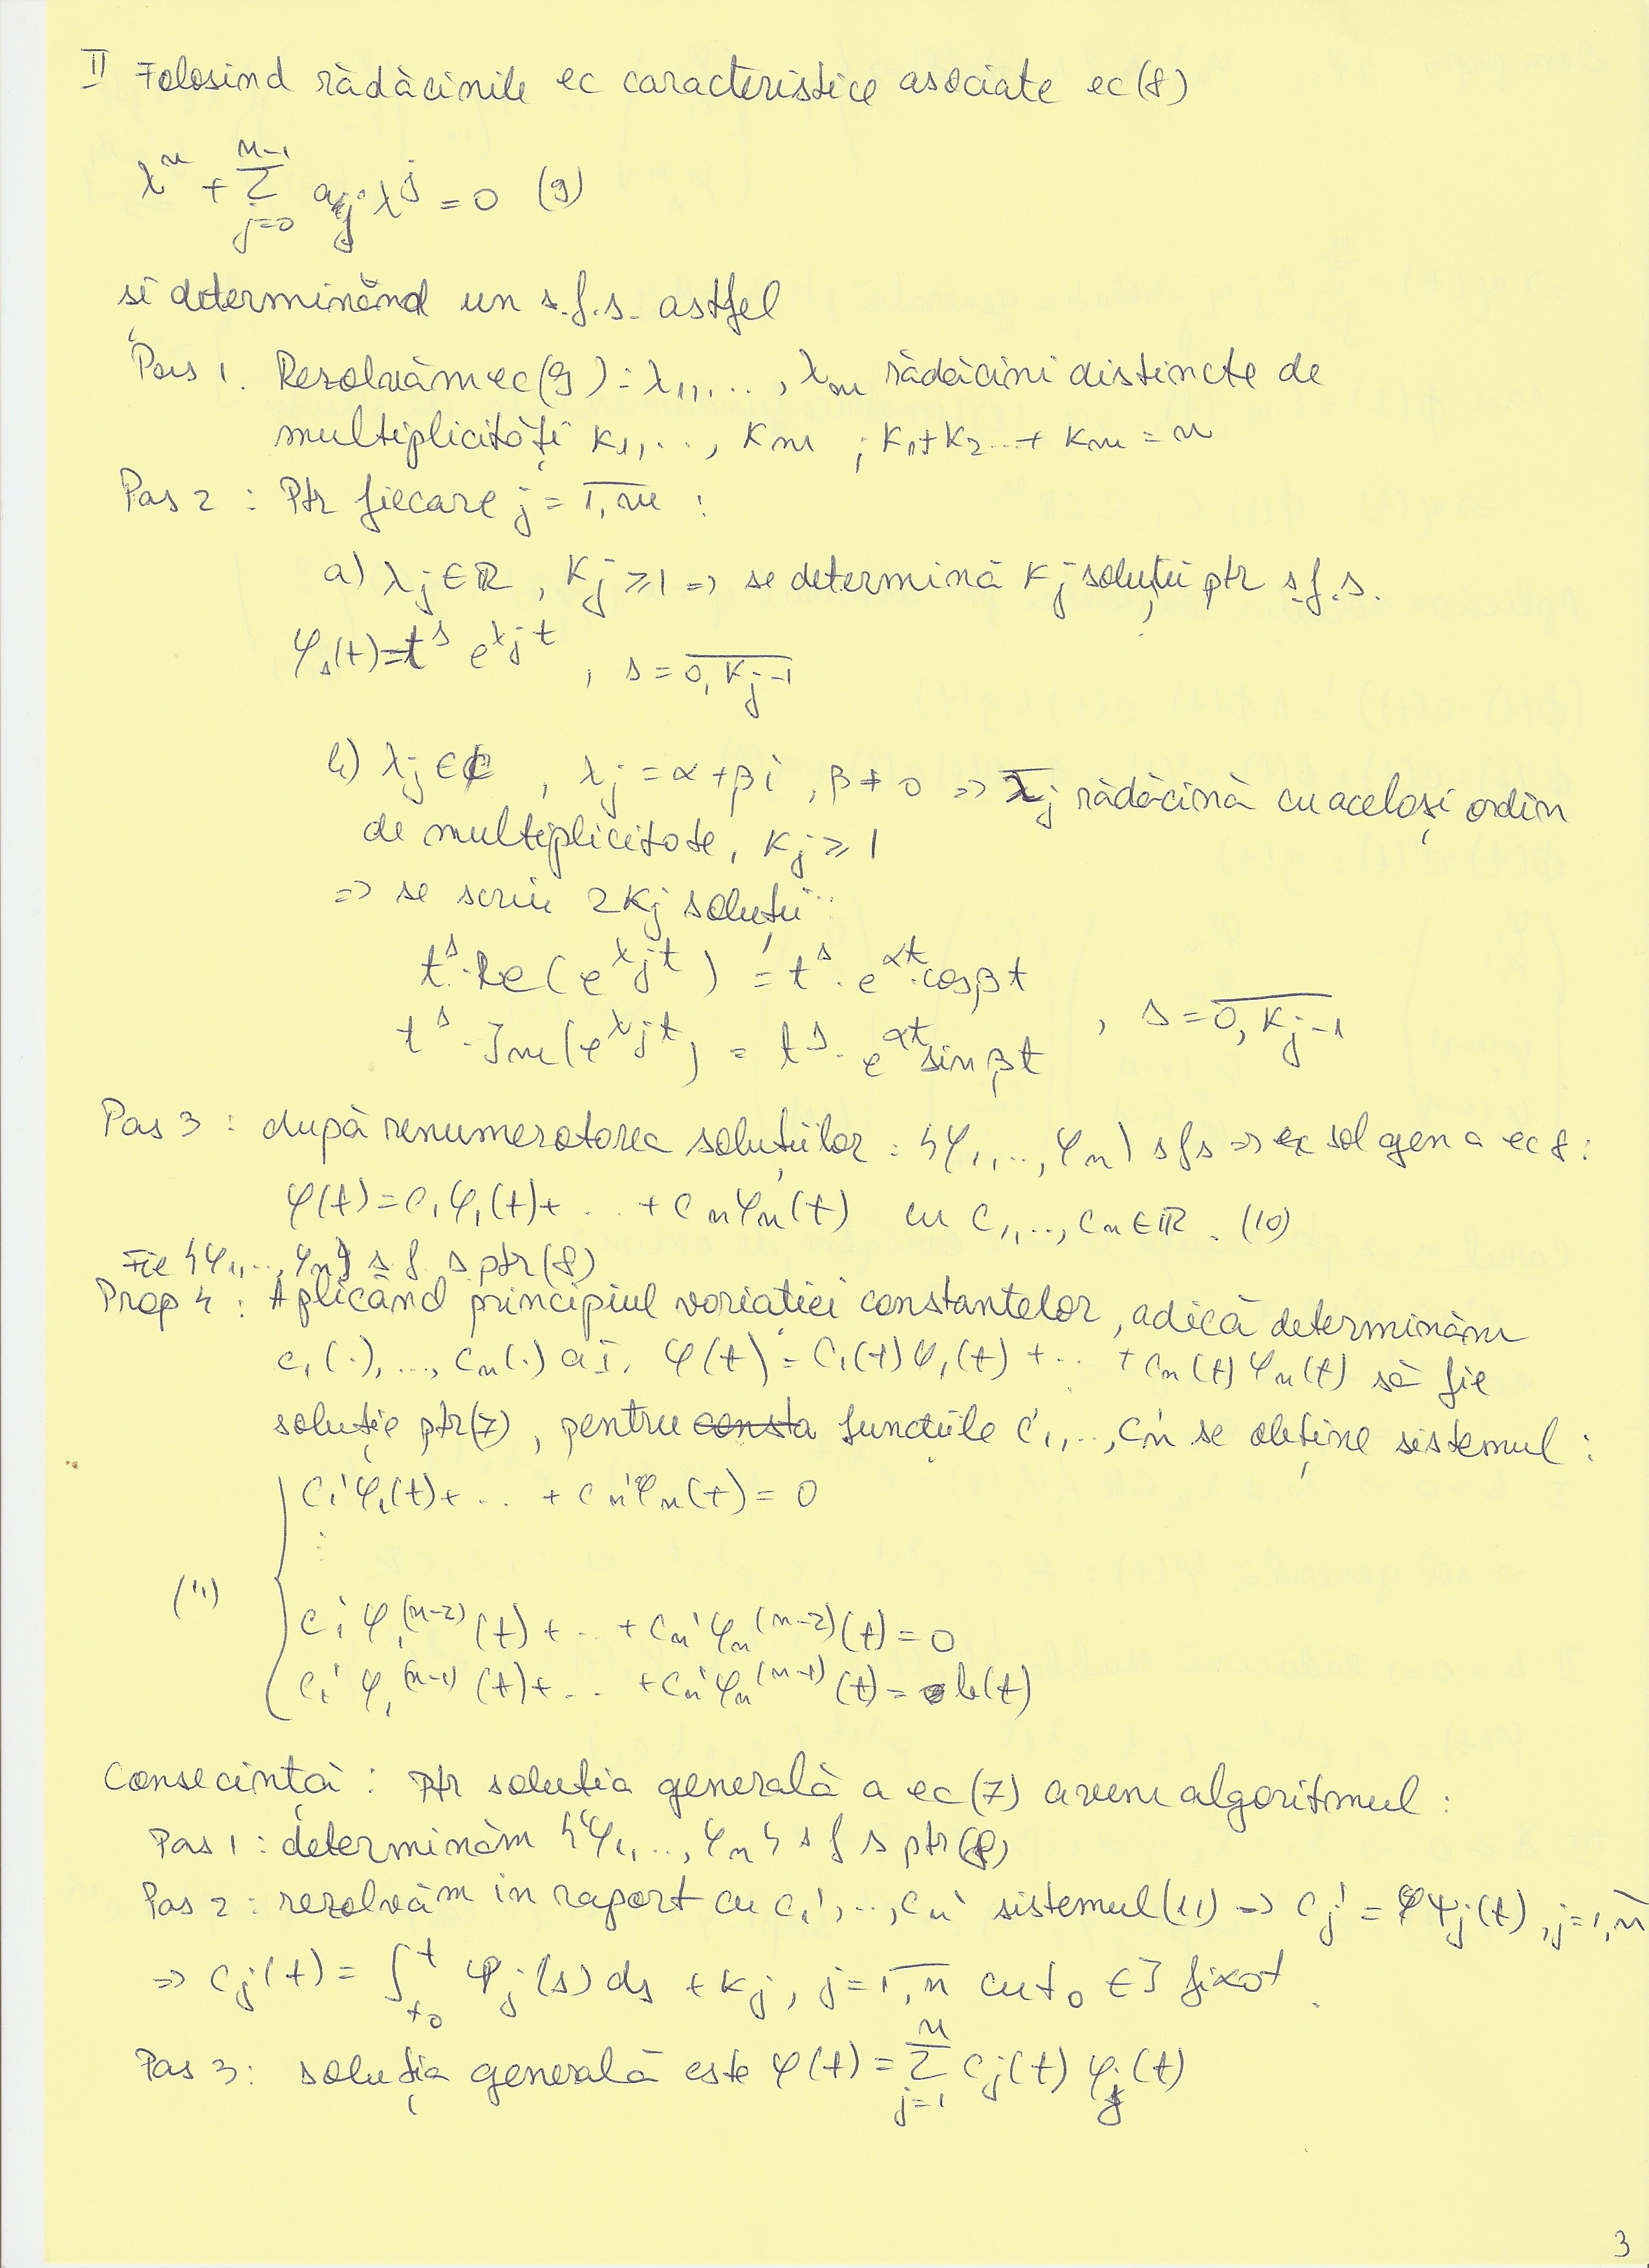 II Folosind rădăcinile ec caracteristice asociate ec(8)
λⁿ + Σ_{j=0}^{n-1} a_j λ^j = 0 (9)
si determinând un s.f.s. astfel
Pas 1. Rezolvăm ec(9) : λ₁,..., λ_m rădăcini distincte de
multiplicități k₁,..., k_m ; k₁+k₂...+ k_m = n
Pas 2 : Ptr fiecare j = \overline{1,m} :
a) λ_j ∈ ℝ , k_j ≥ 1 => se determină k_j soluții ptr s.f.s.
φ_s(t) = t^s e^{λ_j t} , s = \overline{0, k_j-1}
b) λ_j ∈ ℂ , λ_j = α + βi , β ≠ 0 => \overline{λ}_j rădăcină cu același ordin
de multiplicitate, k_j ≥ 1
=> se scriu 2k_j soluții :
t^s · Re(e^{λ_j t}) = t^s · e^{αt} · cos βt
t^s · Im(e^{λ_j t}) = t^s · e^{αt} sin βt , s = \overline{0, k_j-1}
Pas 3 : după renumerotarea soluțiilor : {φ₁,..,φ_n} sfs => sol gen a ec 8 :
φ(t) = c₁φ₁(t) + ... + c_nφ_n(t) cu c₁,..,c_n ∈ ℝ . (10)
Fie {φ₁,..,φ_n} s f s ptr (8)
Prop 4 : Aplicând principiul variatiei constantelor, adică determinăm
c₁(·),..., c_n(·) a.î. φ(t) = c₁(t)φ₁(t) + ... + c_n(t)φ_n(t) să fie
soluție ptr(7) , pentru consta functiile c'₁,..,c'_n se obține sistemul :
c₁'φ₁(t) + ... + c_n'φ_n(t) = 0
⋮
(11)
c₁'φ₁^{(n-2)}(t) + ... + c_n'φ_n^{(n-2)}(t) = 0
c₁'φ₁^{(n-1)}(t) + ... + c_n'φ_n^{(n-1)}(t) = b(t)
Consecință : ptr solutia generală a ec(7) avem algoritmul :
Pas 1 : determinăm {φ₁,..,φ_n} s f s ptr(8)
Pas 2 : rezolvăm in raport cu c₁',..,c_n' sistemul(11) => c_j' = ψ_j(t) , j=\overline{1,n}
=> c_j(t) = ∫_{t₀}^{t} ψ_j(s) ds + k_j , j=\overline{1,n} cu t₀ ∈ I fixat .
Pas 3 : soluția generală este φ(t) = Σ_{j=1}^{n} c_j(t) φ_j(t)
3